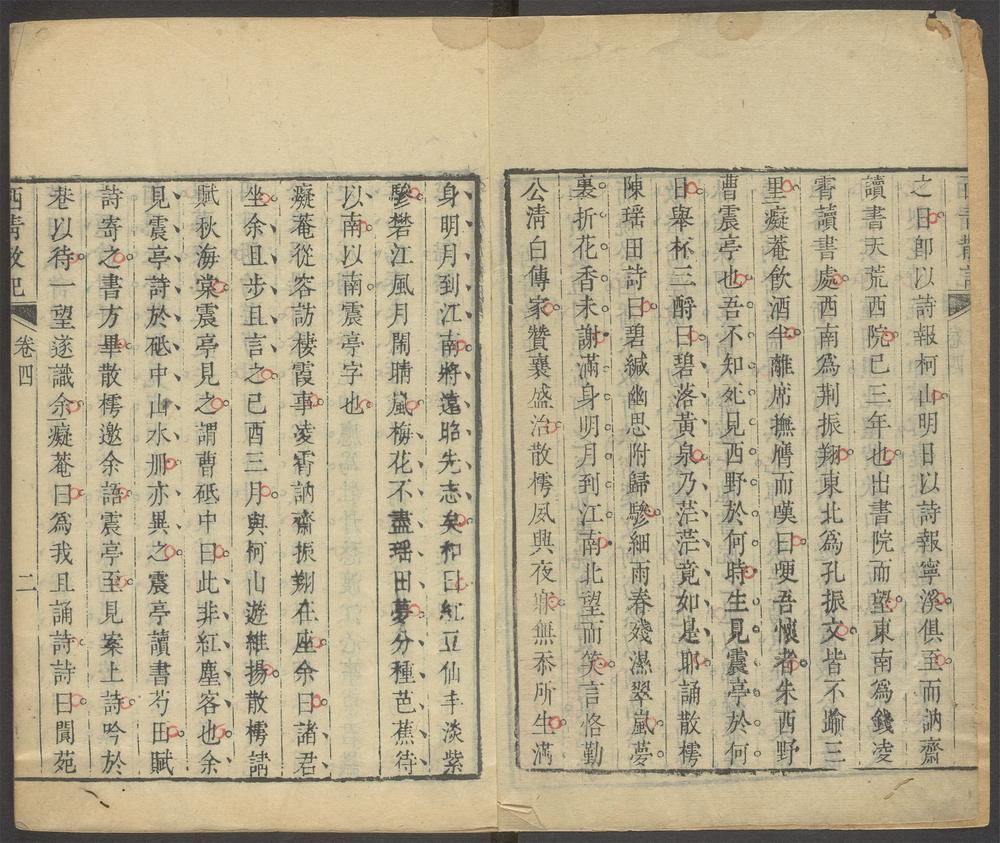 之日卽以詩報柯山明日以詩報寧溪俱至而訥齋
讀書天荒西院已三年也出書院而望東南爲錢凌
霄讀書處西南爲荆振翔東北爲孔振文皆不踰三
里癡菴飲酒半離席撫膺而嘆曰哽吾懷者朱西野
曹震亭也吾不知死見西野於何時生見震亭於何
日舉杯三酹曰碧落黃泉乃茫茫竟如是耶誦散樗
陳瑶田詩曰碧緘幽思附歸驂細雨春殘濕翠嵐夢
裏折花香未謝滿身明月到江南北望而笑言恪勤
公淸白傳家贊襄盛治散樗夙興夜寐無忝所生滿
身明月到江南將遠昭先志矣和曰紅豆仙丰淡紫
驂礬江風月閙晴嵐梅花不盡瑶田夢分種芭蕉待
以南以南震亭字也
癡菴從容訪棲霞事凌霄訥齋振翔在座余曰諸君
坐余且步且言之己酉三月與柯山遊維揚散樗講
賦秋海棠震亭見之謂曹砥中曰此非紅塵客也余
見震亭詩於砥中山水冊亦異之震亭讀書芍田賦
詩寄之書方畢散樗邀余語震亭至見案上詩吟於
巷以待一望遂識余癡菴曰爲我且誦詩詩曰閬苑
西靑散記
卷四
二